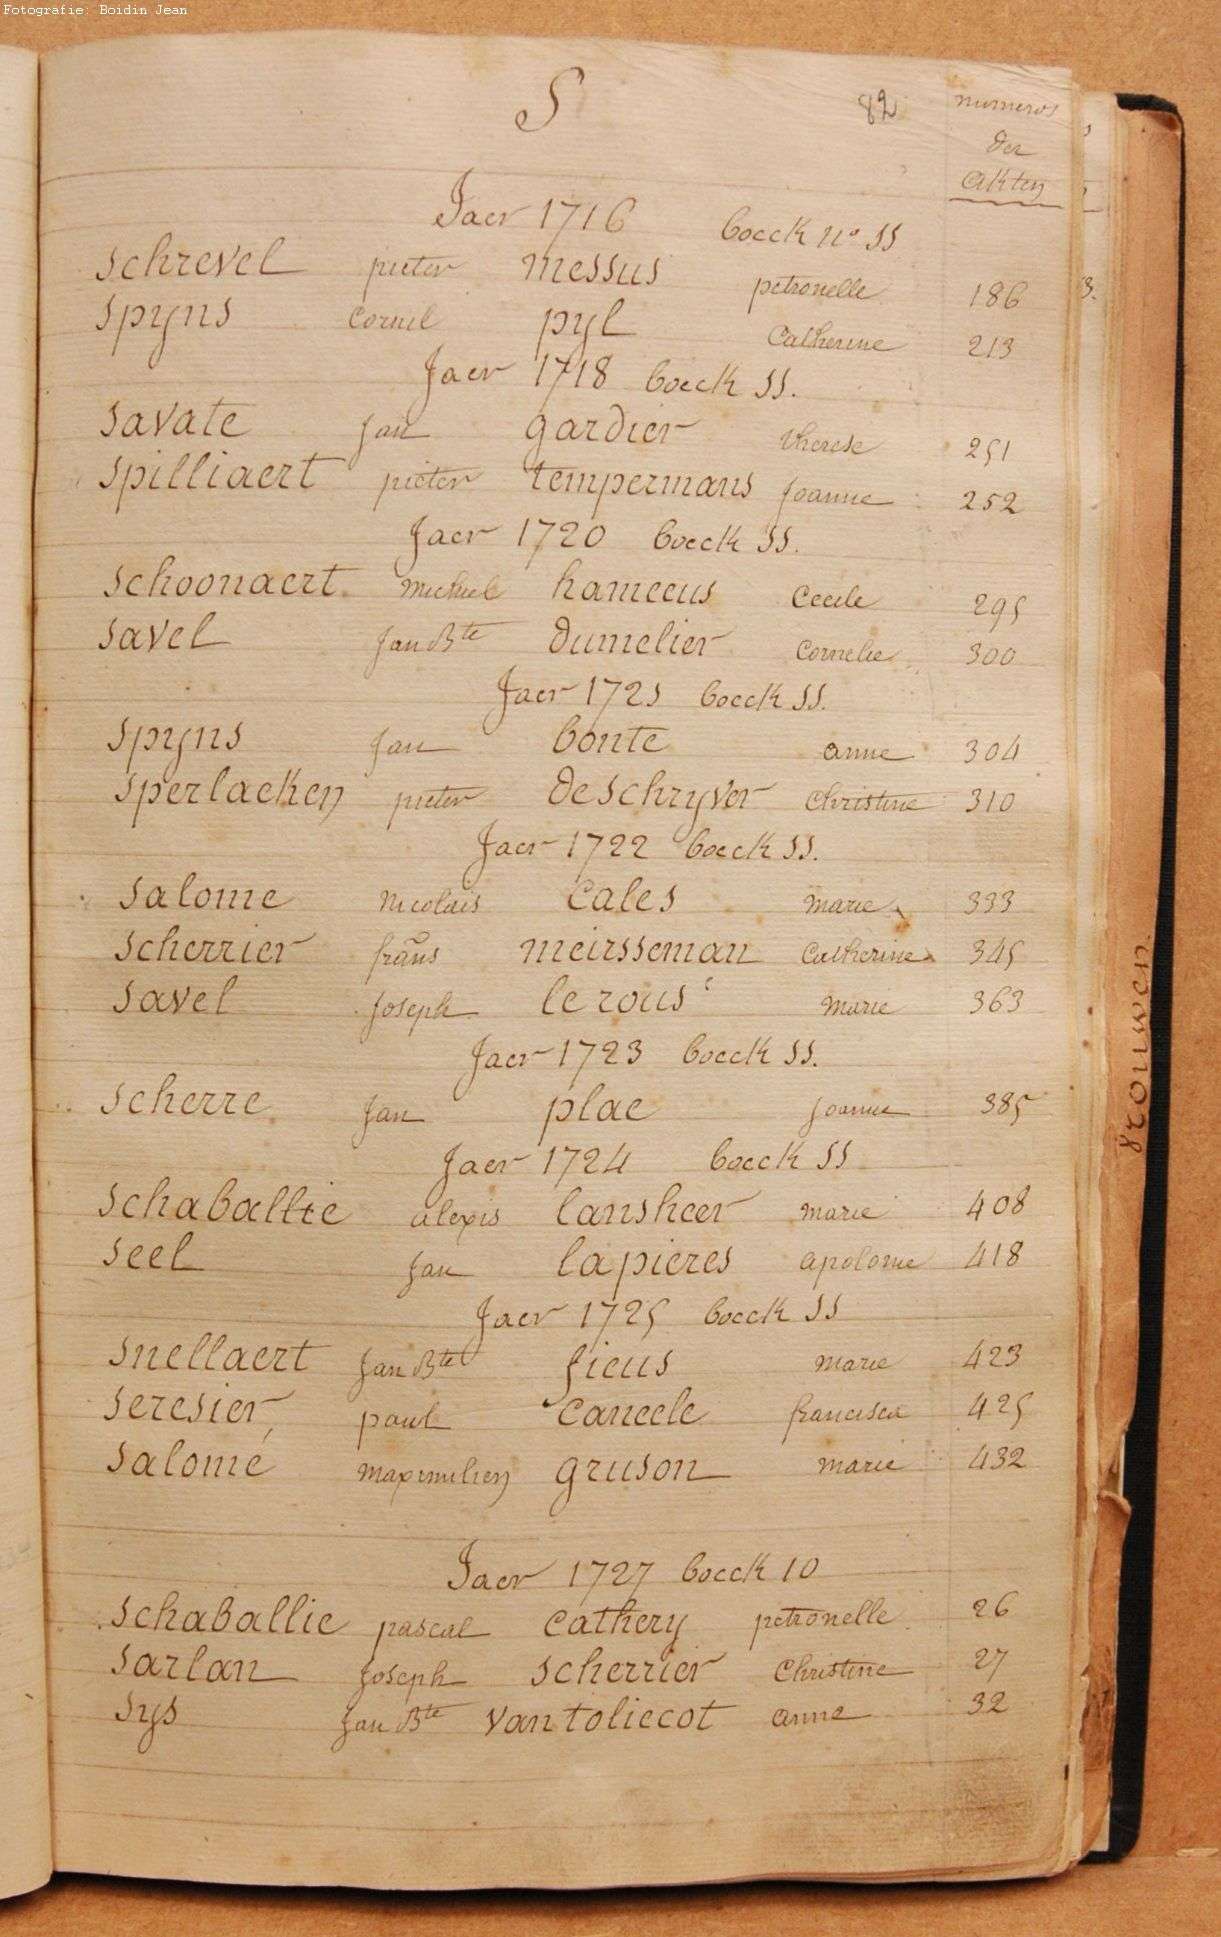 Fotografie: Boidin Jean
S 82 numeros
der
akten
Jaer 1716 boeck nº SS
schrevel pieter messus petronelle 186
spyns cornel pyl Catherine 213
Jaer 1718 boeck SS.
savate Jan gardier therese 251
spilliaert pieter tempermans Joanne 252
Jaer 1720 boeck SS.
schoonaert michiel hameeus Cecile 295
savel Jan Bte dumelier Cornelie 300
Jaer 1721 boeck SS.
spyns Jan bonte anne 304
sperlacken pieter deschryver Christine 310
Jaer 1722 boeck SS.
salome nicolais cales marie 333
scherrier frans meirsseman Catherine 345
savel Joseph le rous marie 363
Jaer 1723 boeck SS.
scherre Jan plae Joanne 385
Jaer 1724 boeck SS
schaballie alexis lansheer marie 408
seel Jan lapieres apolonie 418
Jaer 1725 boeck SS
snellaert Jan Bte fieus marie 423
seresier paul caneele francisca 425
salomé maximilien gruson marie 432
Jaer 1727 boeck 10
schaballie pascal cathery petronelle 26
sarlan Joseph scherrier Christine 27
sys Jan Bte vantoliecot anne 32
vrouwen